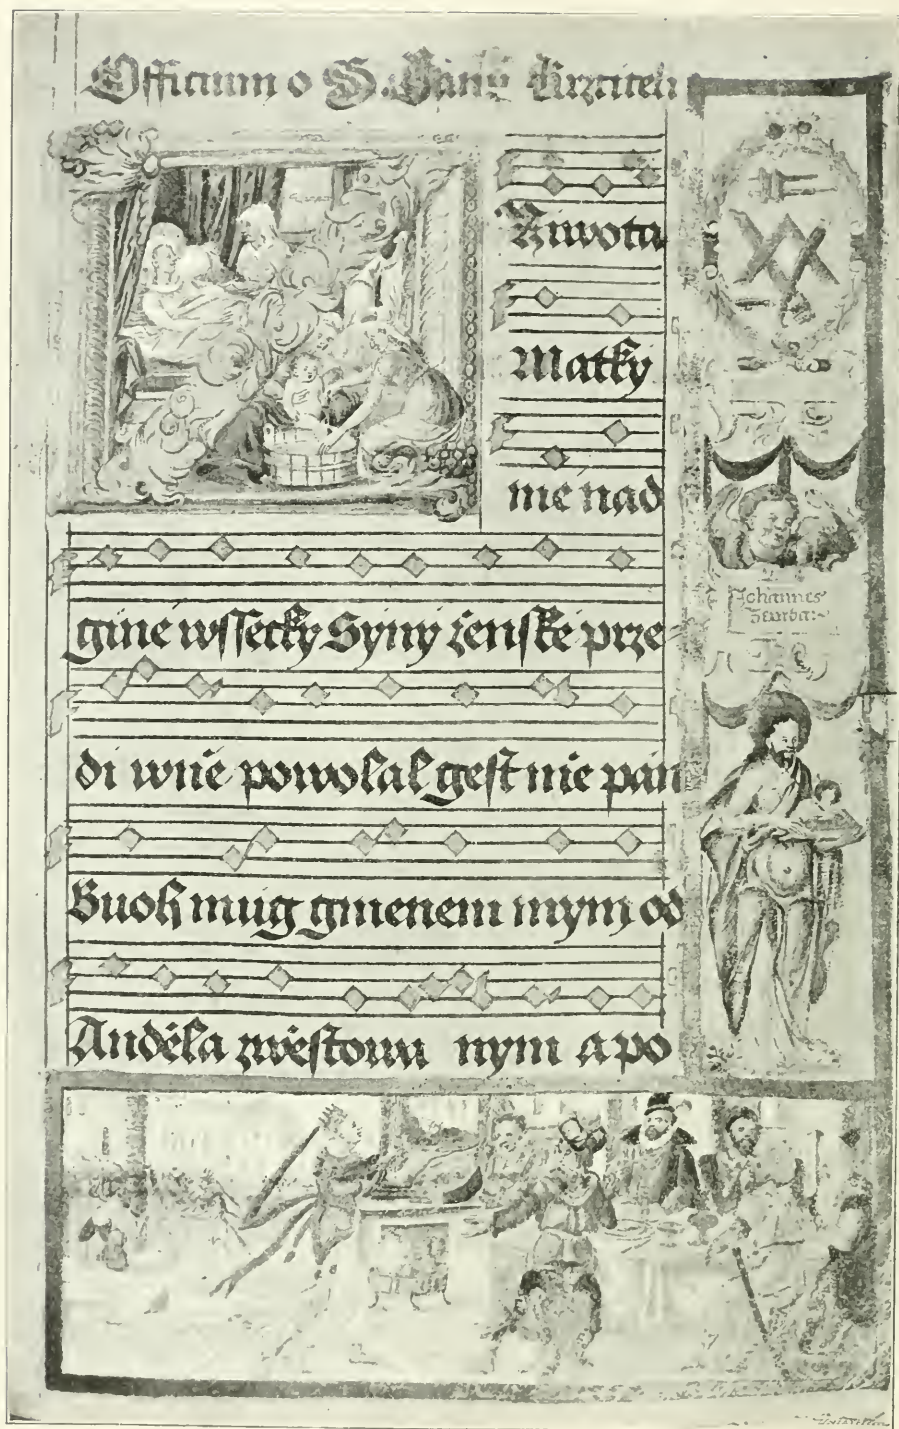 Officium o S. Janu Krztiteli
Ziwota
Matky
me nad
gine wssecky Syny zenske prze
di wnie powolal gest nie pan
Buoh muig gmenem mym od
Andela zwiestowa nym a po
Johannes